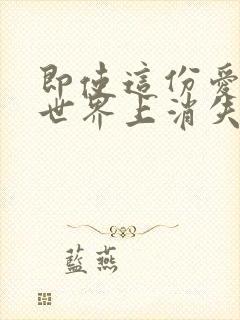 即使這份愛
世界上消失
藍燕